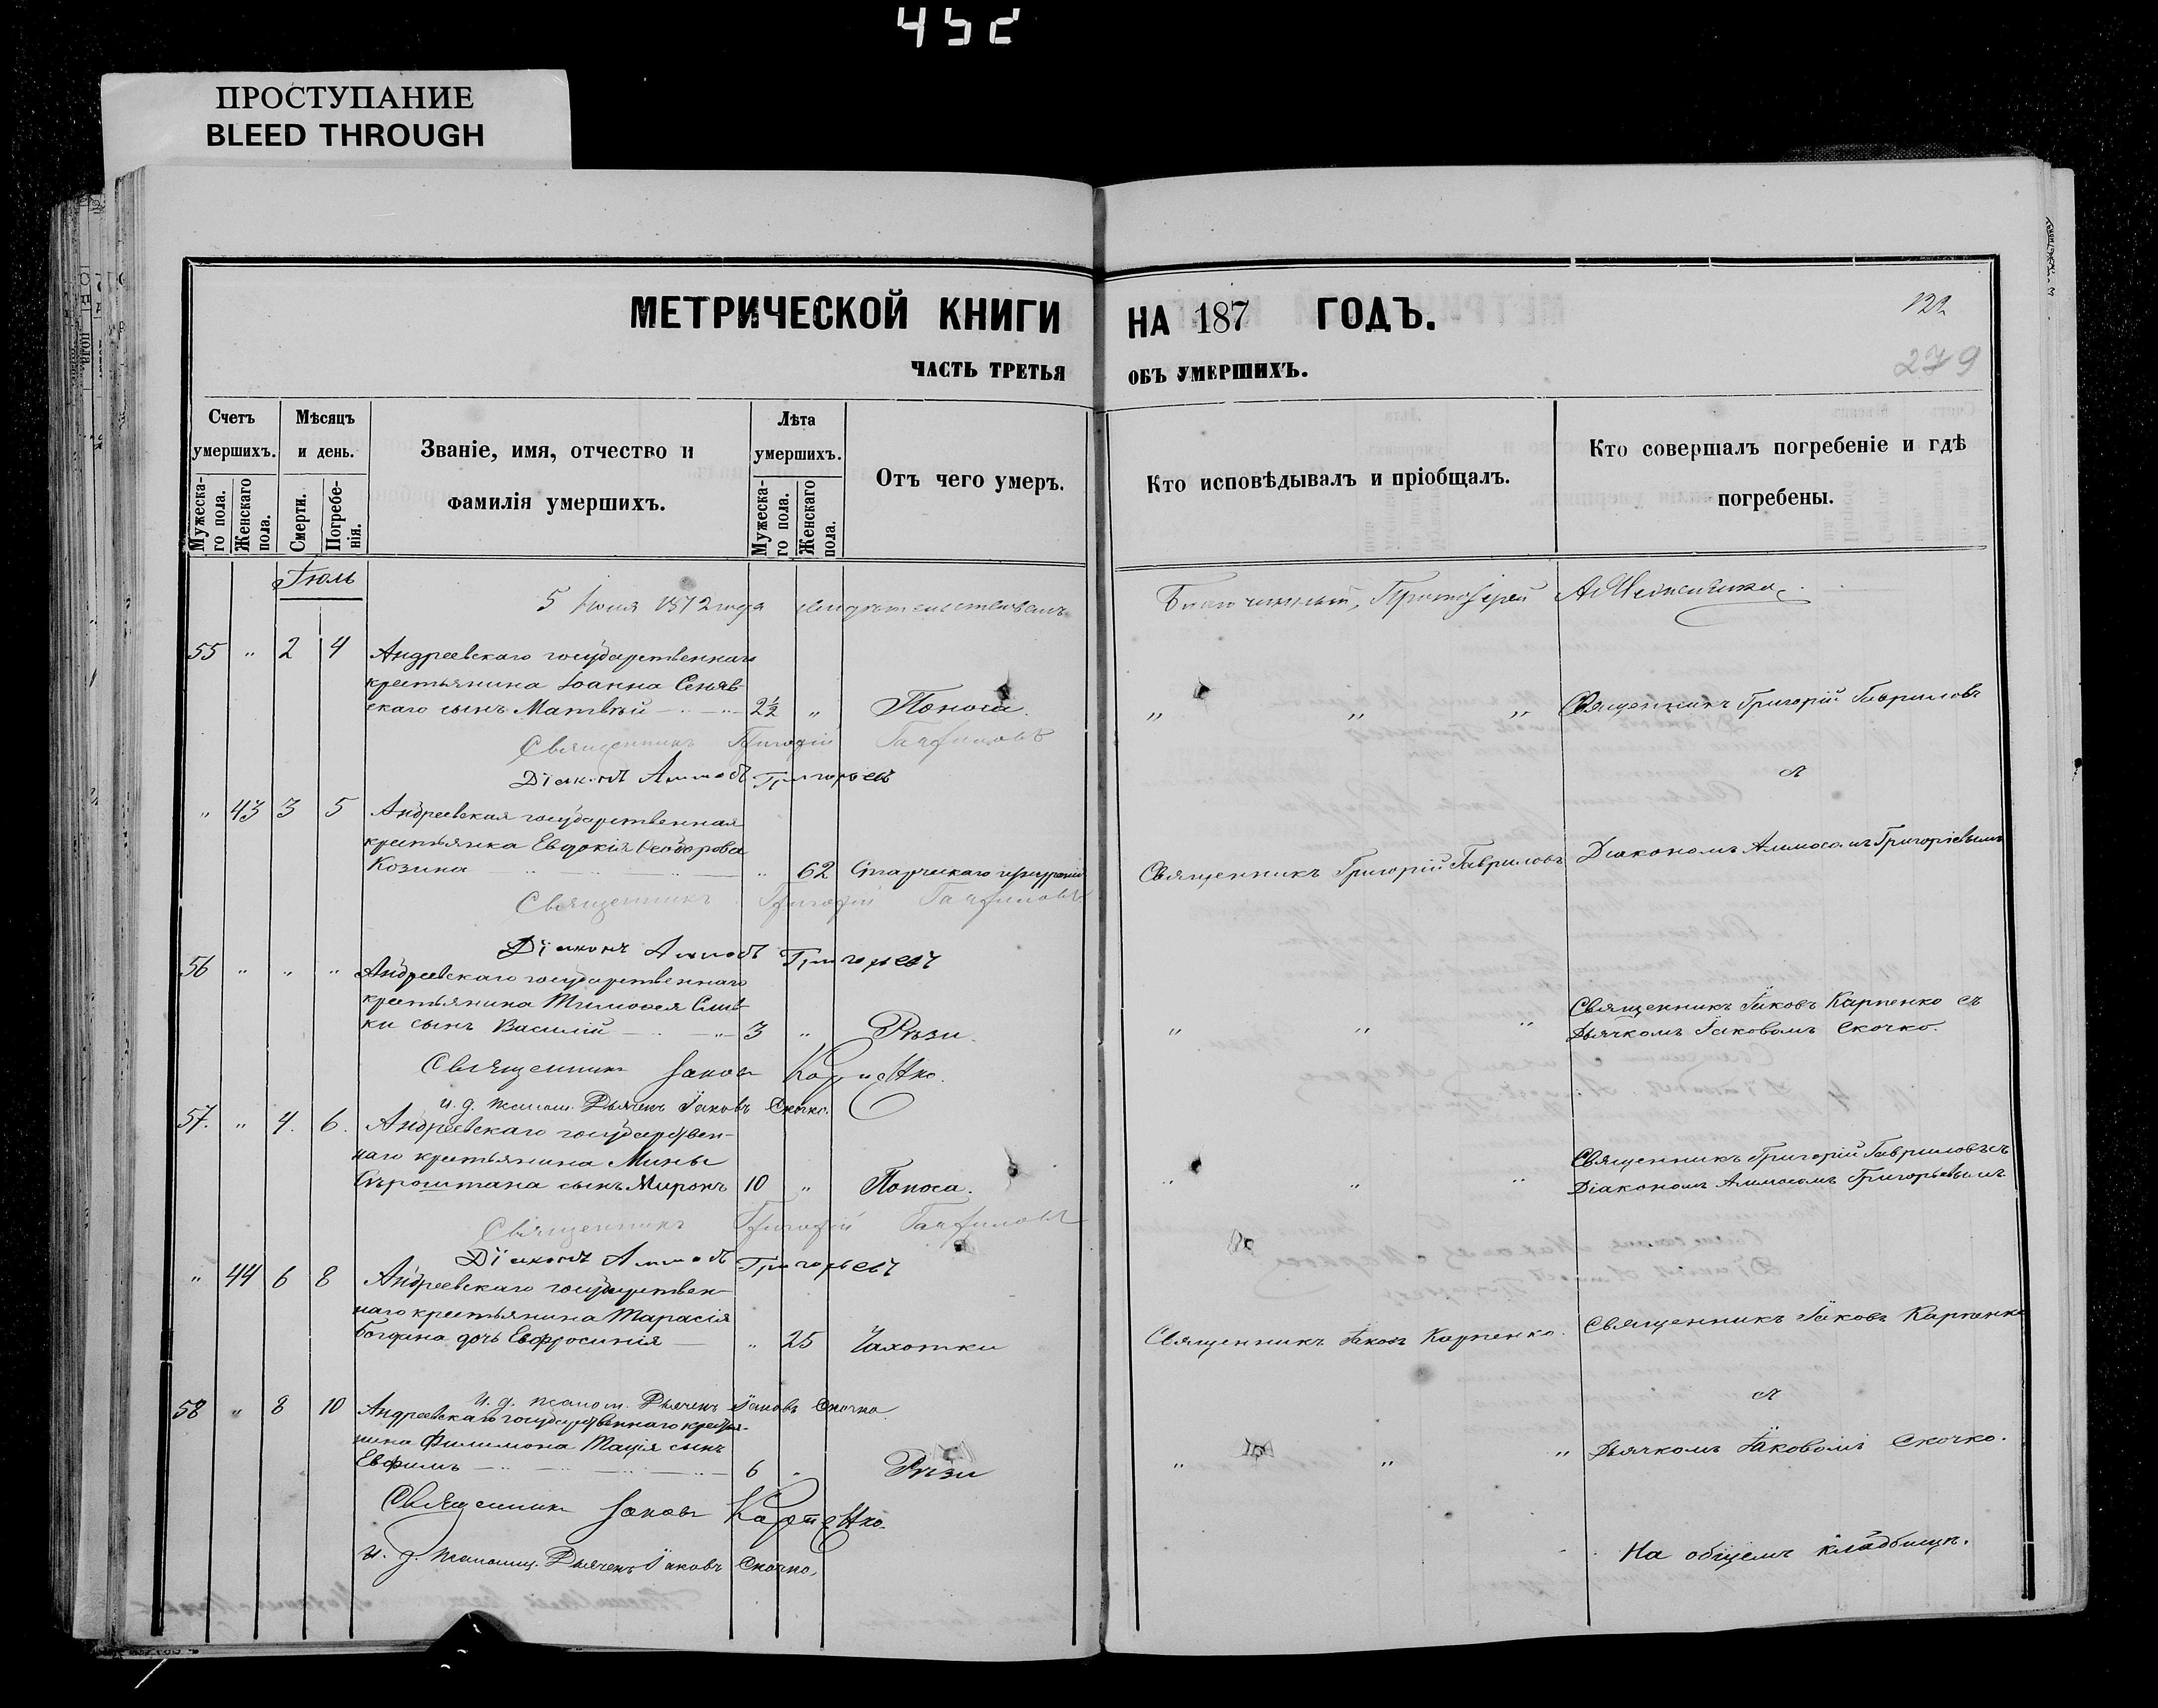 452
ПРОСТУПАНИЕ
BLEED THROUGH
МЕТРИЧЕСКОЙ КНИГИ НА 187 ГОДЪ.
122
279
ЧАСТЬ ТРЕТЬЯ ОБЪ УМЕРШИХЪ.
Счетъ умершихъ.
Мужеска-го пола.
Женскаго пола.
Мѣсяцъ и день.
Смерти.
Погребе-нія.
Званіе, имя, отчество и
фамилія умершихъ.
Лѣта умершихъ.
Мужеска-го пола.
Женскаго пола.
Отъ чего умеръ.
Кто исповѣдывалъ и пріобщалъ.
Кто совершалъ погребеніе и гдѣ
погребены.
Іюль
5 Іюля 1872 года свидѣтельствовалъ Благочинный, Протоіерей
55 " 2 4 Андреевскаго государственнаго
крестьянина Іоанна Сеняв-
скаго сынъ Матвѣй 2½ " Поноса. " " " Священникъ Григорій Гавриловъ
Священникъ Григорій Гавриловъ
Діаконъ Аммосъ Григорьевъ
с
" 43 3 5 Андреевская государственная
крестьянка Евдокія Ѳеодорова
Козина " 62 Старческаго Священникъ Григорій Гавриловъ Діакономъ Аммосомъ Григоріевымъ
Священникъ Григорій Гавриловъ
Діаконъ Аммосъ Григорьевъ
56 " " " Андреевскаго государственнаго
крестьянина Тимоѳея Слив-
ки сынъ Василій 3 " Рѣзи. " " " Священникъ Іаковъ Карпенко съ
Дьячкомъ Іаковомъ Скочко.
Священникъ Іаковъ Карпенко.
и. д. псалом. Дьячекъ Іаковъ Скочко.
57. " 4. 6. Андреевскаго государствен-
наго крестьянина Мины
Сыроштана сынъ Миронъ 10 " Поноса. " " " Священникъ Григорій Гавриловъ съ
Діакономъ Аммосомъ Григорьевымъ
Священникъ Григорій Гавриловъ
Діаконъ Аммосъ Григорьевъ
" 44 6 8 Андреевскаго государствен-
наго крестьянина Тарасія
Богдана дочь Евфросинія " 25 Чахотки Священникъ Іаковъ Карпенко. Священникъ Іаковъ Карпенко
и. д. псалом. Дьячекъ Іаковъ Скочко.
с
58 " 8 10 Андреевскаго государственнаго крестья-
нина Филимона Мація сынъ
Евфимъ 6 " Рѣзи " " " Дьячкомъ Іаковомъ Скочко.
Священникъ Іаковъ Карпенко.
и. д. псаломщ. Дьячекъ Іаковъ Скочко.
На общемъ кладбищѣ.